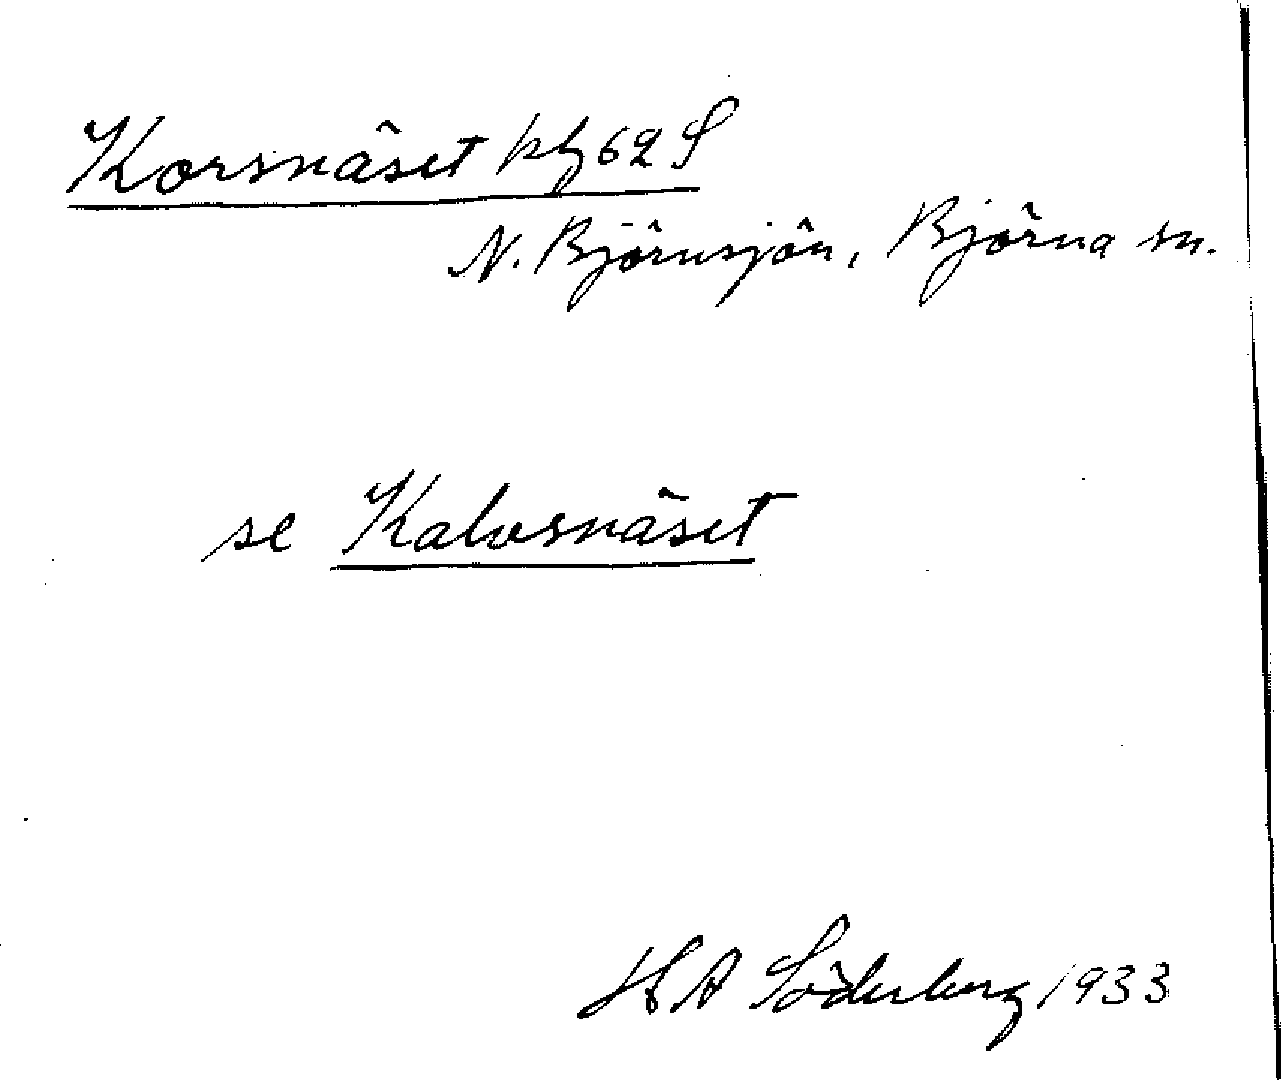 Korsnäset kbl 62 S
N. Björnsjön, Björna sn.
se Kalvsnäset
H A Söderberg 1933